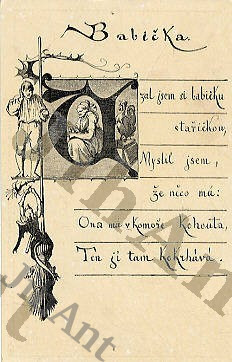 Babička.
Vzal jsem si babičku
stařičkou,
Myslil jsem,
že něco má:
Ona má v komoře kohouta,
Ten jí tam kokrhává.
JihAnt